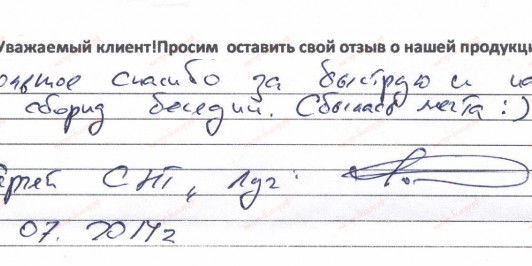 Уважаемый клиент!Просим оставить свой отзыв о нашей продукци
ольшое спасибо за быструю и
сборку беседки. Сбылась мечта :)
ергей СНТ „ Луч "
07. 2014г